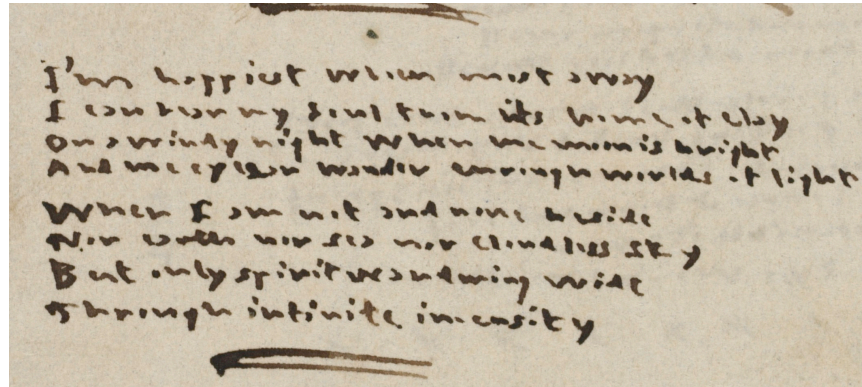 I'm happiest when most away
I can bear my soul from its home of clay
On a windy night when the moon is bright
And the eye can wander through worlds of light
When I am not and none beside
Nor earth nor sea nor cloudless sky
But only spirit wandering wide
Through infinite imensity